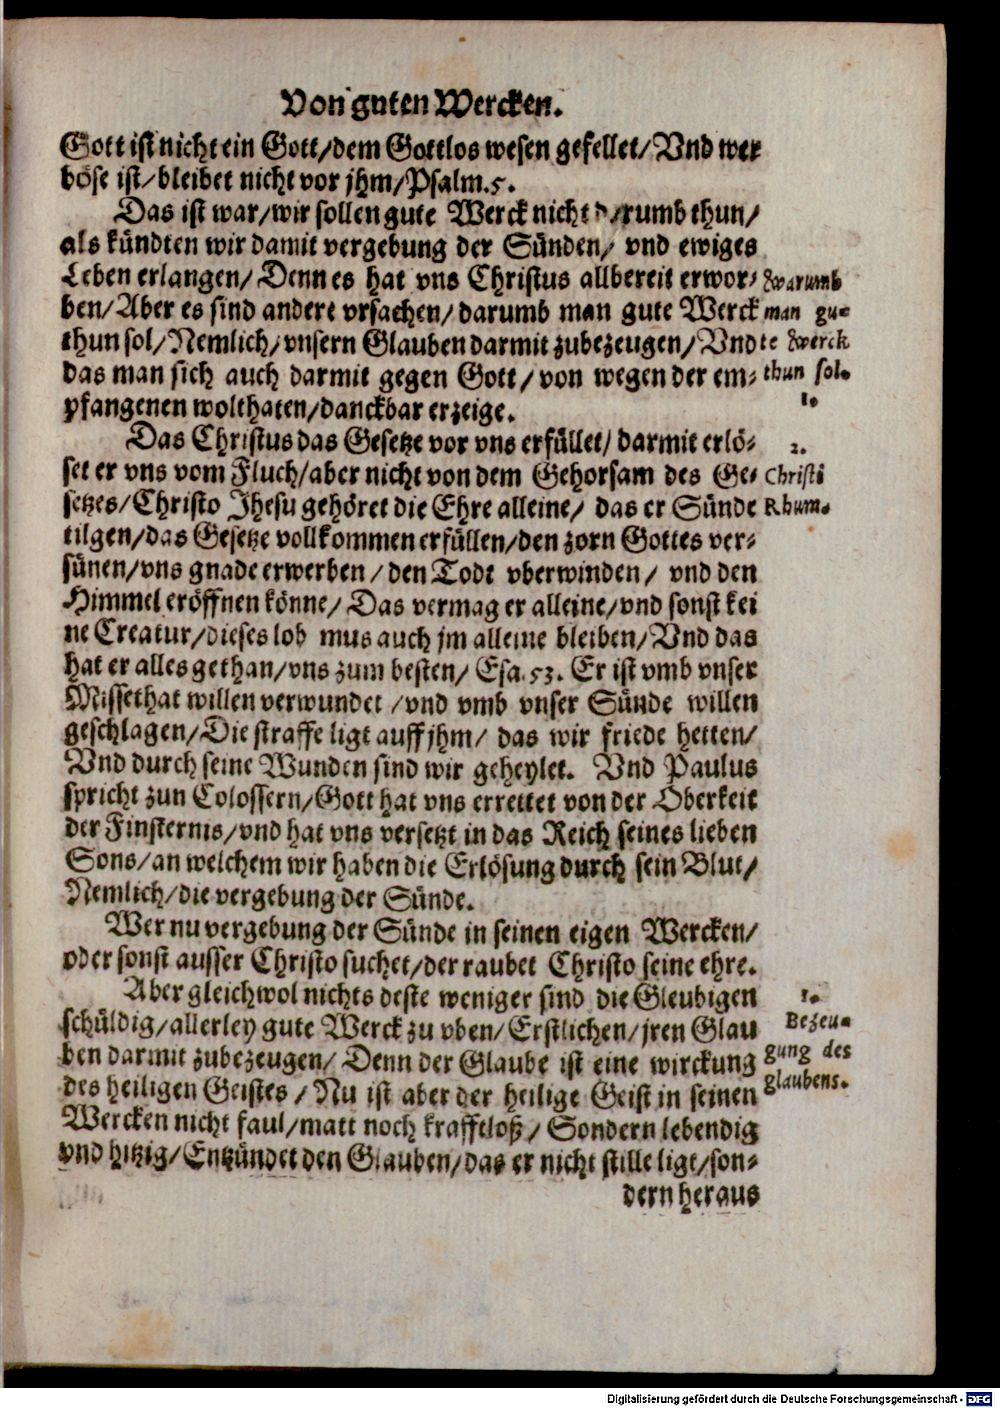 Von guten Wercken.
Gott ist nicht ein Gott/dem Gottlos wesen gefellet/Vnd wer
böse ist/bleibet nicht vor jhm/Psalm.5.
Das ist war/wir sollen gute Werck nicht darumb thun/
als kündten wir damit vergebung der Sünden/ vnd ewiges
Leben erlangen/ Denn es hat vns Christus allbereit erwor-
ben/Aber es sind andere vrsachen/ darumb man gute Werck
thun sol/Nemlich/vnsern Glauben darmit zubezeugen/Vnd
das man sich auch darmit gegen Gott/von wegen der em-
pfangenen wolthaten/danckbar erzeige.
Warumb
man gu-
te Werck
thun sol.
1.
Das Christus das Gesetze vor vns erfüllet/ darmit erlö-
set er vns vom Fluch/aber nicht von dem Gehorsam des Ge-
setzes/Christo Jhesu gehöret die Ehre alleine/ das er Sünde
tilgen/das Gesetze vollkommen erfüllen/den zorn Gottes ver-
sünen/vns gnade erwerben/den Todt vberwinden/ vnd den
Himmel eröffnen könne/ Das vermag er alleine/vnd sonst kei
ne Creatur/dieses lob mus auch jm alleine bleiben/Vnd das
hat er alles gethan/vns zum besten/ Esa.53. Er ist vmb vnser
Missethat willen verwundet /vnd vmb vnser Sünde willen
geschlagen/Die straffe ligt auff jhm/ das wir friede hetten/
Vnd durch seine Wunden sind wir geheylet. Vnd Paulus
spricht zun Colossern/Gott hat vns errettet von der Oberkeit
der Finsternis/vnd hat vns versetzt in das Reich seines lieben
Sons/an welchem wir haben die Erlösung durch sein Blut/
Nemlich/die vergebung der Sünde.
2.
Christi
Rhum.
Wer nu vergebung der Sünde in seinen eigen Wercken/
oder sonst ausser Christo suchet/der raubet Christo seine ehre.
Aber gleichwol nichts deste weniger sind die Gleubigen
schüldig/allerley gute Werck zu vben/Erstlichen/jren Glau
ben darmit zubezeugen/ Denn der Glaube ist eine wirckung
des heiligen Geistes /Nu ist aber der heilige Geist in seinen
Wercken nicht faul/matt noch krafftloß/ Sondern lebendig
vnd hitzig/Entzündet den Glauben/das er nicht stille ligt/son-
1.
Bezeu-
gung des
glaubens.
dern heraus
Digitalisierung gefördert durch die Deutsche Forschungsgemeinschaft - DFG